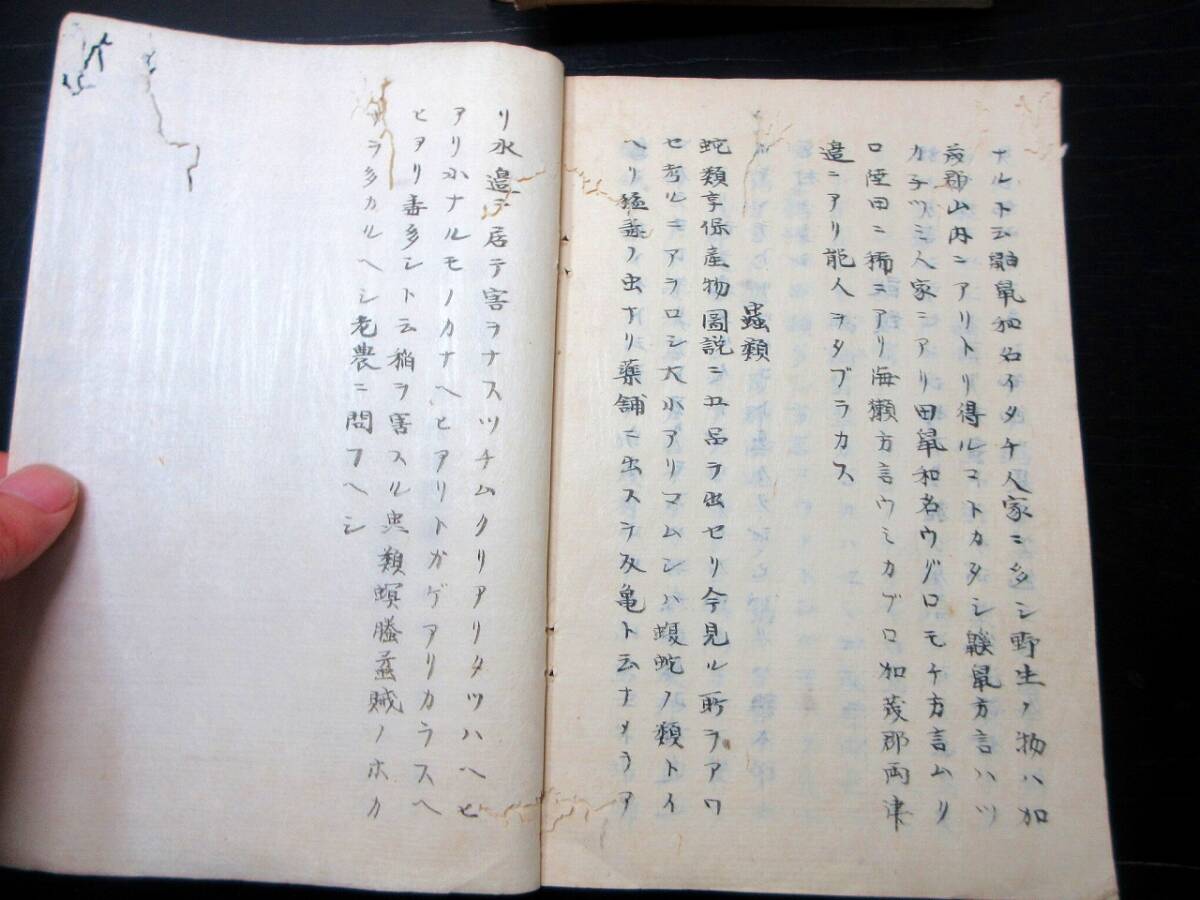 ナルト云鼬鼠和名イタチ人家ニ多シ野生ノ物ハ加
茂郡山内ニアリトリ得ルコトカタシ鼷鼠方言ハツ
カ子ツミ人家ニアリ田鼠和名ウグロモチ方言ムリ
ロ陸田ニ稀ニアリ海獺方言ウミカブロ加茂郡両津
邉ニアリ能人ヲタブラカス
蟲類
蛇類享保産物圖説ニ五品ヲ出セリ今見ル所ヲアワ
セ考ルニアヲロシ大ホアリマムシハ蝮蛇ノ類トイ
ヘリ猛毒ノ虫ナリ薬舗ニ出ステ反亀ト云ナメラア
リ水邉ニ居テ害ヲナスツチムクリアリタツハヘヒ
アリ小ナルモノカナヘヒアリトガゲアリカラスヘ
ヒアリ毒多シト云稲ヲ害スル虫類螟螣蟊賊ノホカ
アラ多カルヘシ老農ニ問フヘシ